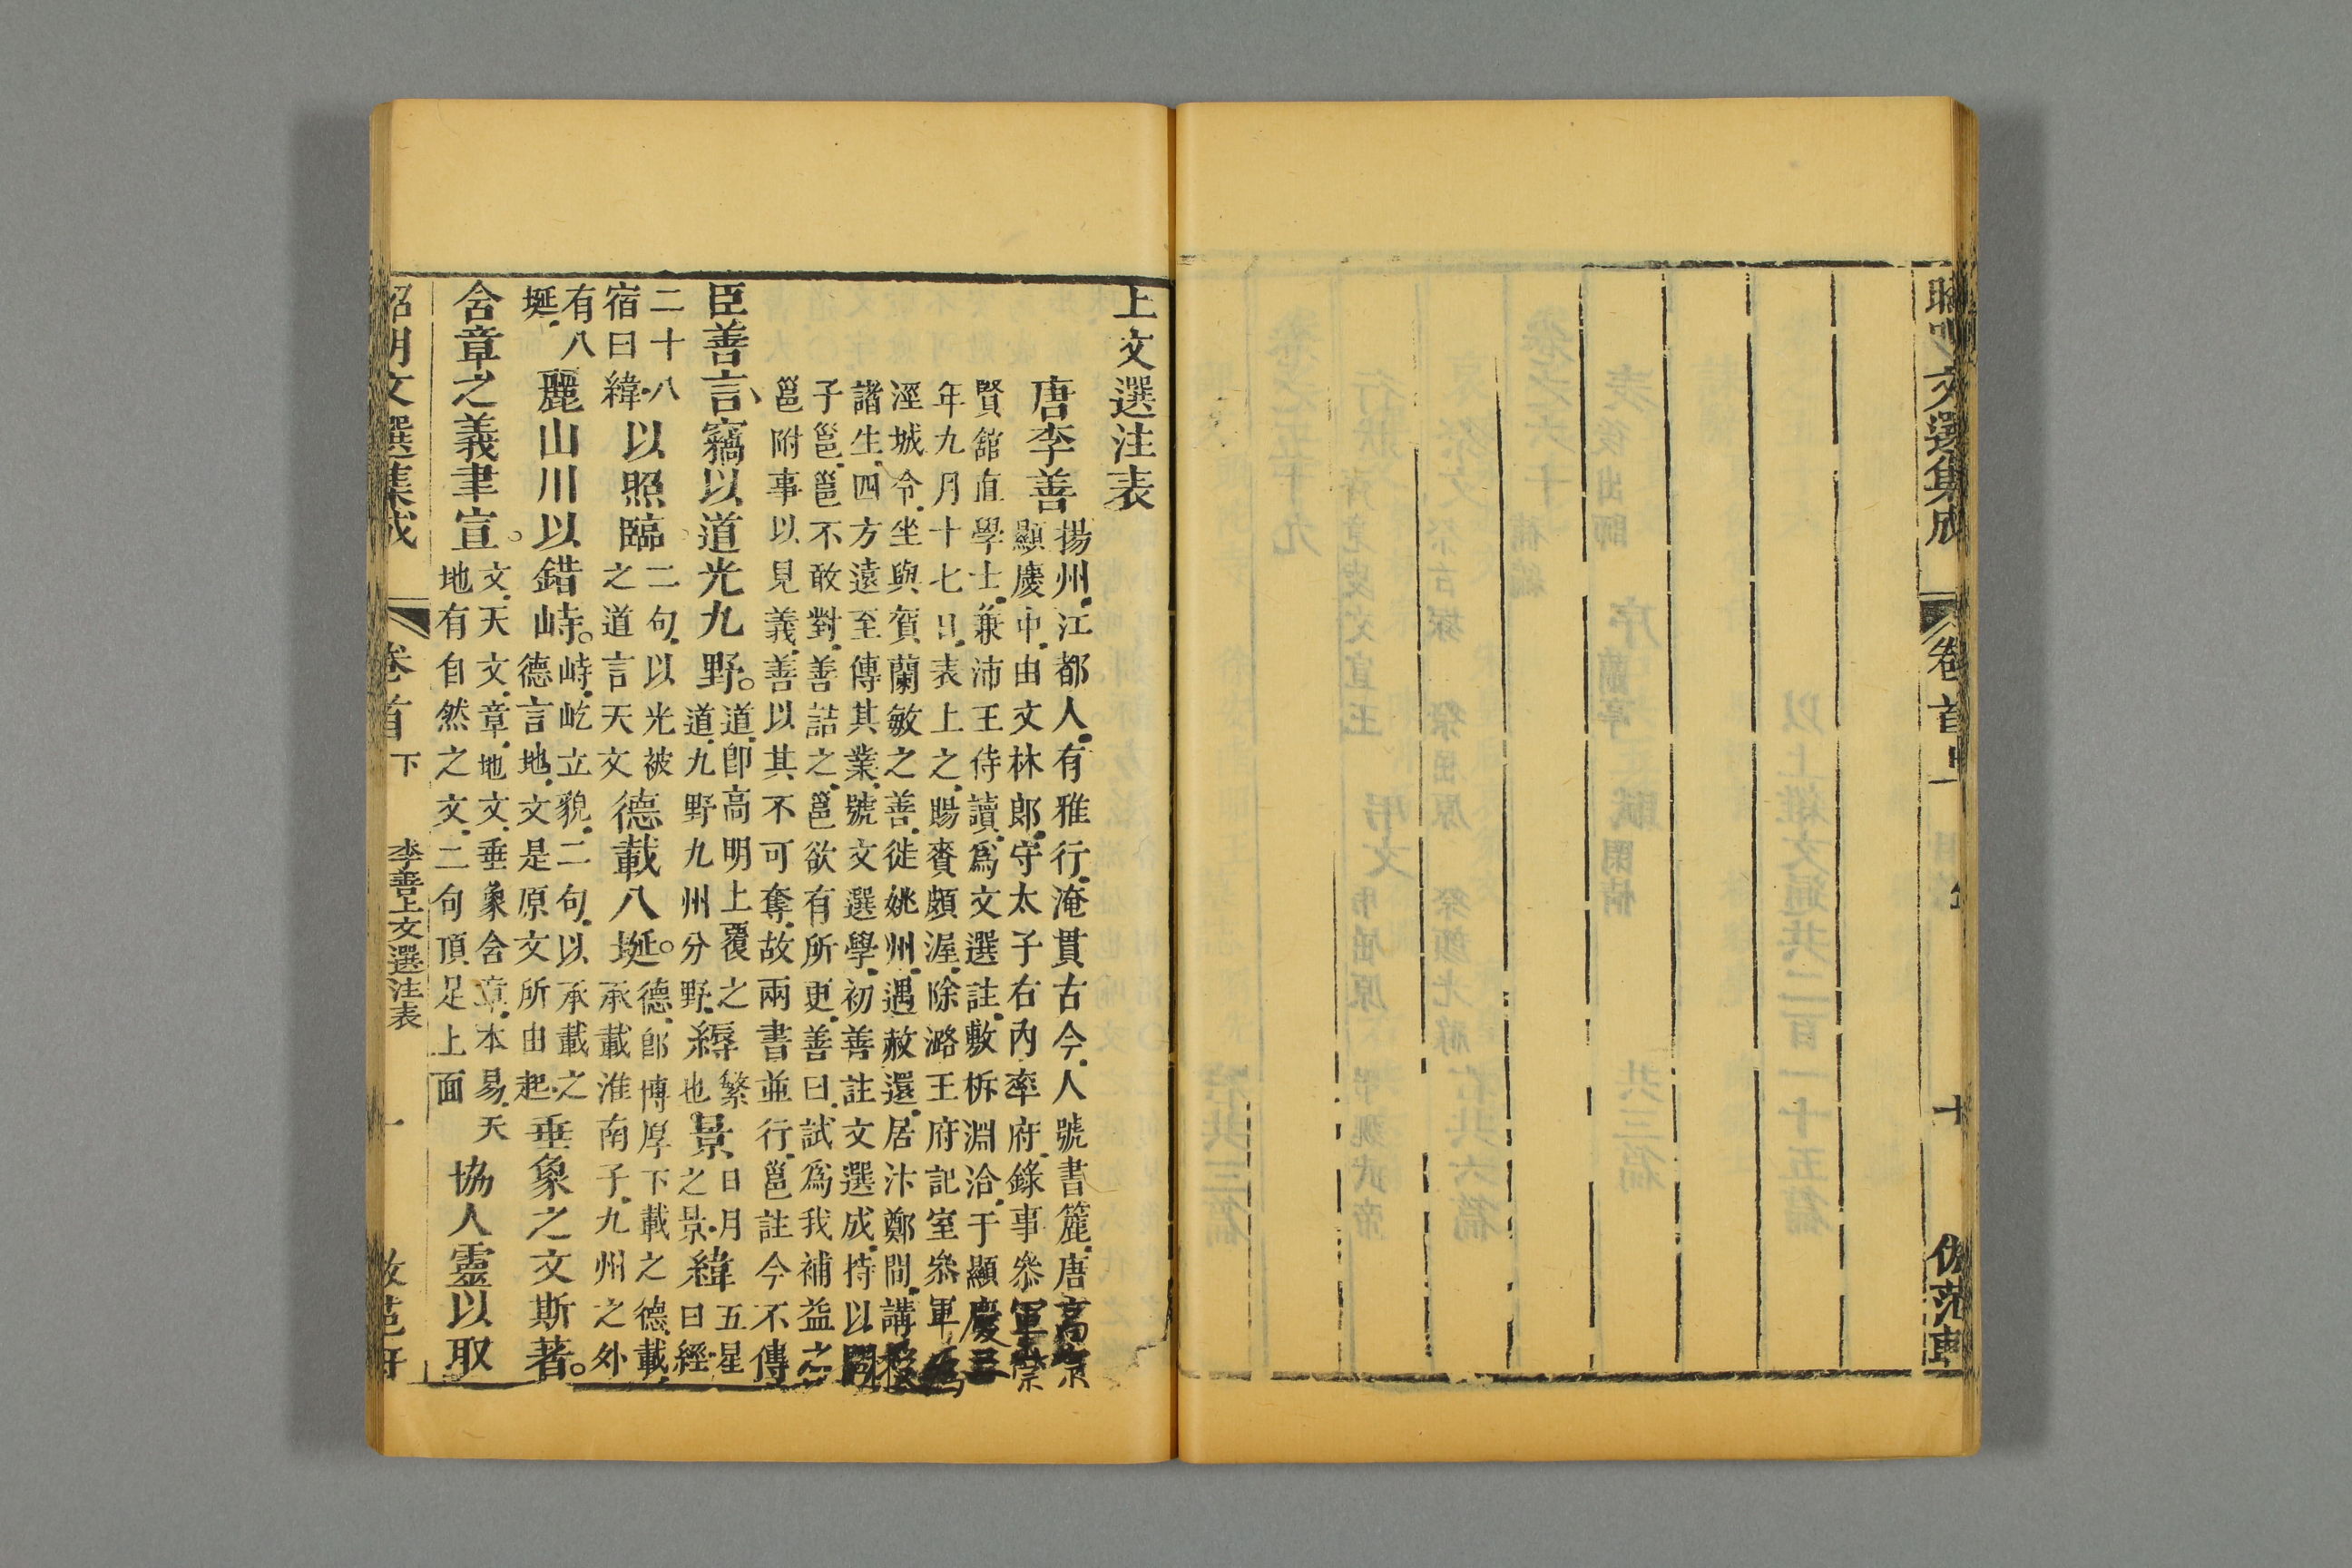 昭明文選集成
卷首
十
上文選注表
唐李善
揚州江都人有雅行淹貫古今人號書簏唐高宗
顯慶中由文林郎守太子右內率府錄事參軍崇
賢館直學士兼沛王侍讀爲文選註敷析淵洽于顯慶三
年九月十七日表上之賜賚頗渥除潞王府記室叅軍爲
涇城令坐與賀蘭敏之善徙姚州遇赦還居汴鄭間講授
諸生四方遠至傳其業號文選學初善註文選成持以問
子邕邕不敢對善詰之邕欲有所更善曰試爲我補益之
邕附事以見義善以其不可奪故兩書並行邕註今不傳
臣善言竊以道光九野
道卽高明上覆之
道九野九州分野
縟
繁
也
景
日月
之景
緯
五星
曰經
二十八
宿曰緯
以照臨
二句以光被
之道言天文
德載八埏
德卽博厚下載之德載
承載淮南子九州之外
有八
埏
麗山川以錯峙
峙屹立貌二句以承載之
德言地文是原文所由起
垂象之文斯著
含章之義聿宣
文天文章地文垂象含章本易天
地有自然之文二句頂足上面
協人靈以取
昭明文選集成
卷首下
李善上文選注表
一